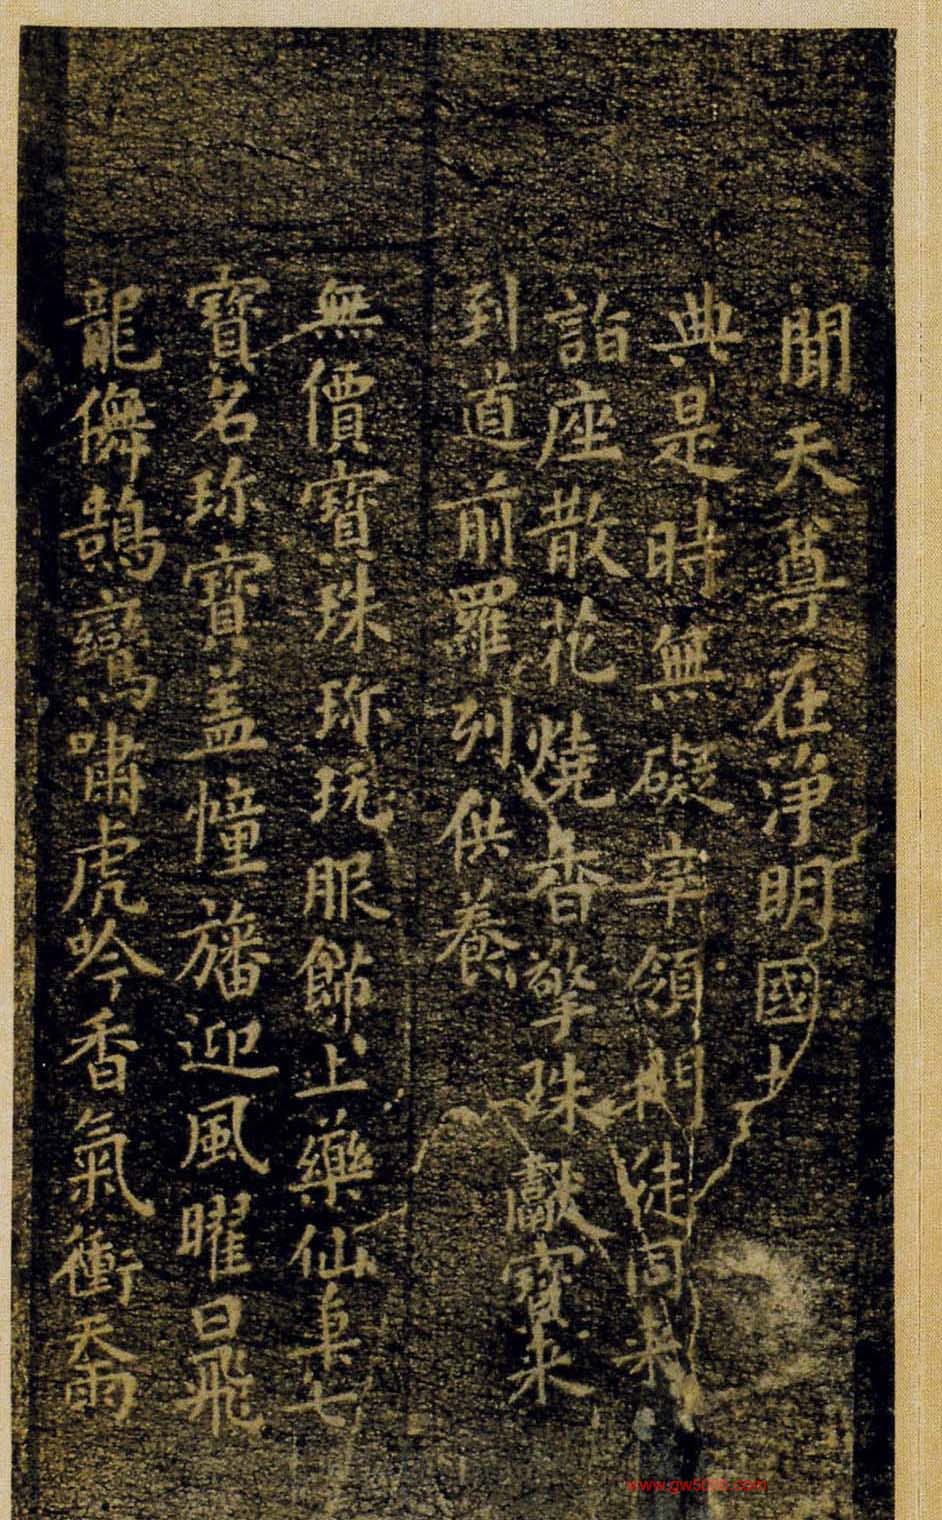 聞天尊在淨明國土
典是時無礙宰領門徒同来
詣座散花燒香擎珠獻寶来
到道前羅列供養
無價寶珠珎玩服飾上藥仙菓七
寶名珎寶盖幢旛迎風曜日飛
龍儛鵠鸞嘯虎吟香氣衝天雨